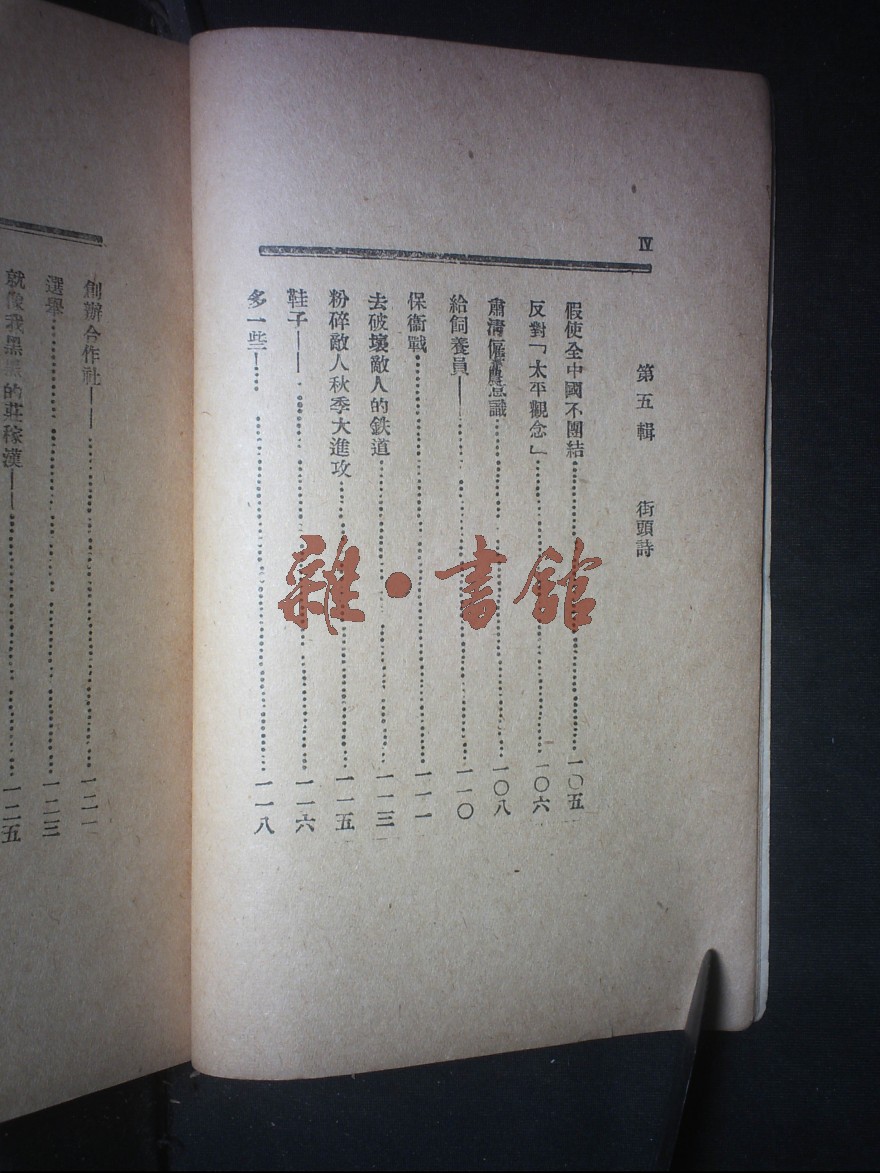 Ⅳ
第五輯 街頭詩
假使全中國不團結……一〇五
反對「太平觀念」……一〇六
肅清僱農意識……一〇八
給飼養員——……一一〇
保衞戰……一一一
去破壞敵人的鉄道……一一三
粉碎敵人秋季大進攻……一一五
鞋子——……一一六
多一些！……一一八
創辦合作社——……一二一
選舉……一二三
就像我黑黑的莊稼漢——……一二五
雜·書館